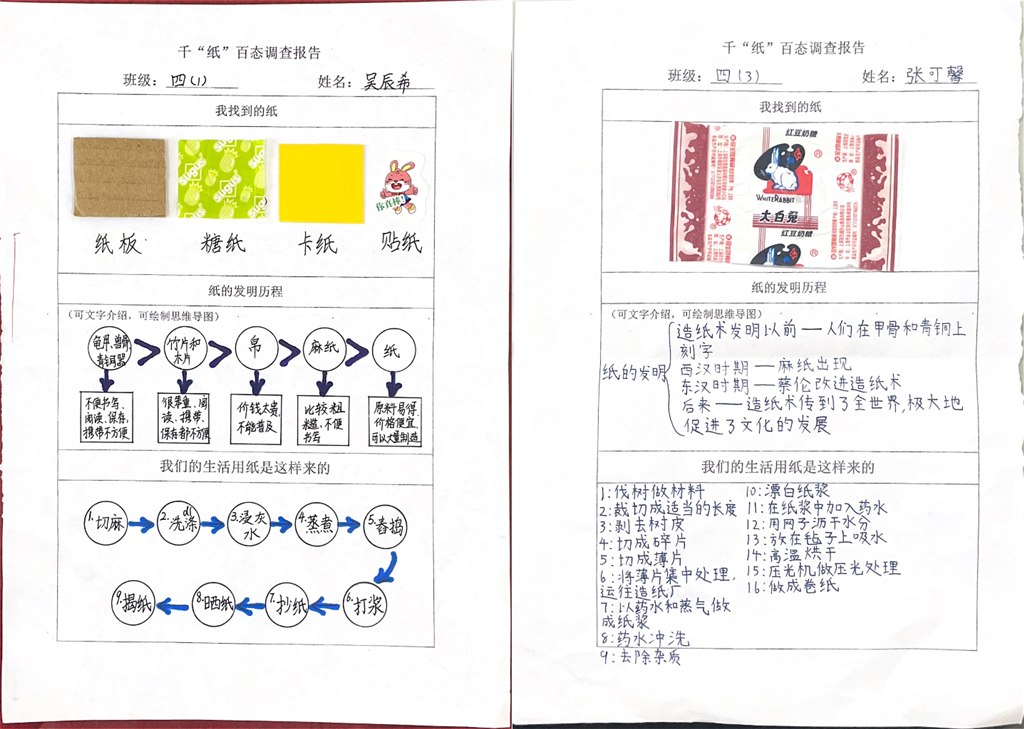 千“纸”百态调查报告
班级：四(1) 姓名：吴辰希
我找到的纸
sugus
你真棒！
纸板 糖纸 卡纸 贴纸
纸的发明历程
（可文字介绍，可绘制思维导图）
龟甲、兽骨、青铜器
竹片和木片
帛
麻纸
纸
不便书写、阅读、保存，携带不方便
很笨重，阅读、携带、保存都不方便
价钱太贵，不能普及
比较粗糙，不便书写
原料易得，价格便宜，可以大量制造
我们的生活用纸是这样来的
1.切麻
2.洗涤
dí
3.浸灰水
4.蒸煮
5.舂捣
6.打浆
7.抄纸
8.晒纸
9.揭纸
千“纸”百态调查报告
班级：四(3) 姓名：张可馨
我找到的纸
红豆奶糖
WHITE RABBIT
大白兔
红豆奶糖
纸的发明历程
（可文字介绍，可绘制思维导图）
纸的发明
造纸术发明以前——人们在甲骨和青铜上
刻字
西汉时期——麻纸出现
东汉时期——蔡伦改进造纸术
后来——造纸术传到了全世界，极大地
促进了文化的发展
我们的生活用纸是这样来的
1：伐树做材料
2：裁切成适当的长度
3：剥去树皮
4：切成碎片
5：切成薄片
6：将薄片集中处理，
运往造纸厂
7：以药水和蒸气做
成纸浆
8：药水冲洗
9：去除杂质
10：漂白纸浆
11：在纸浆中加入药水
12：用网子沥干水分
13：放在毡子上吸水
14：高温烘干
15：压光机做压光处理
16：做成卷纸